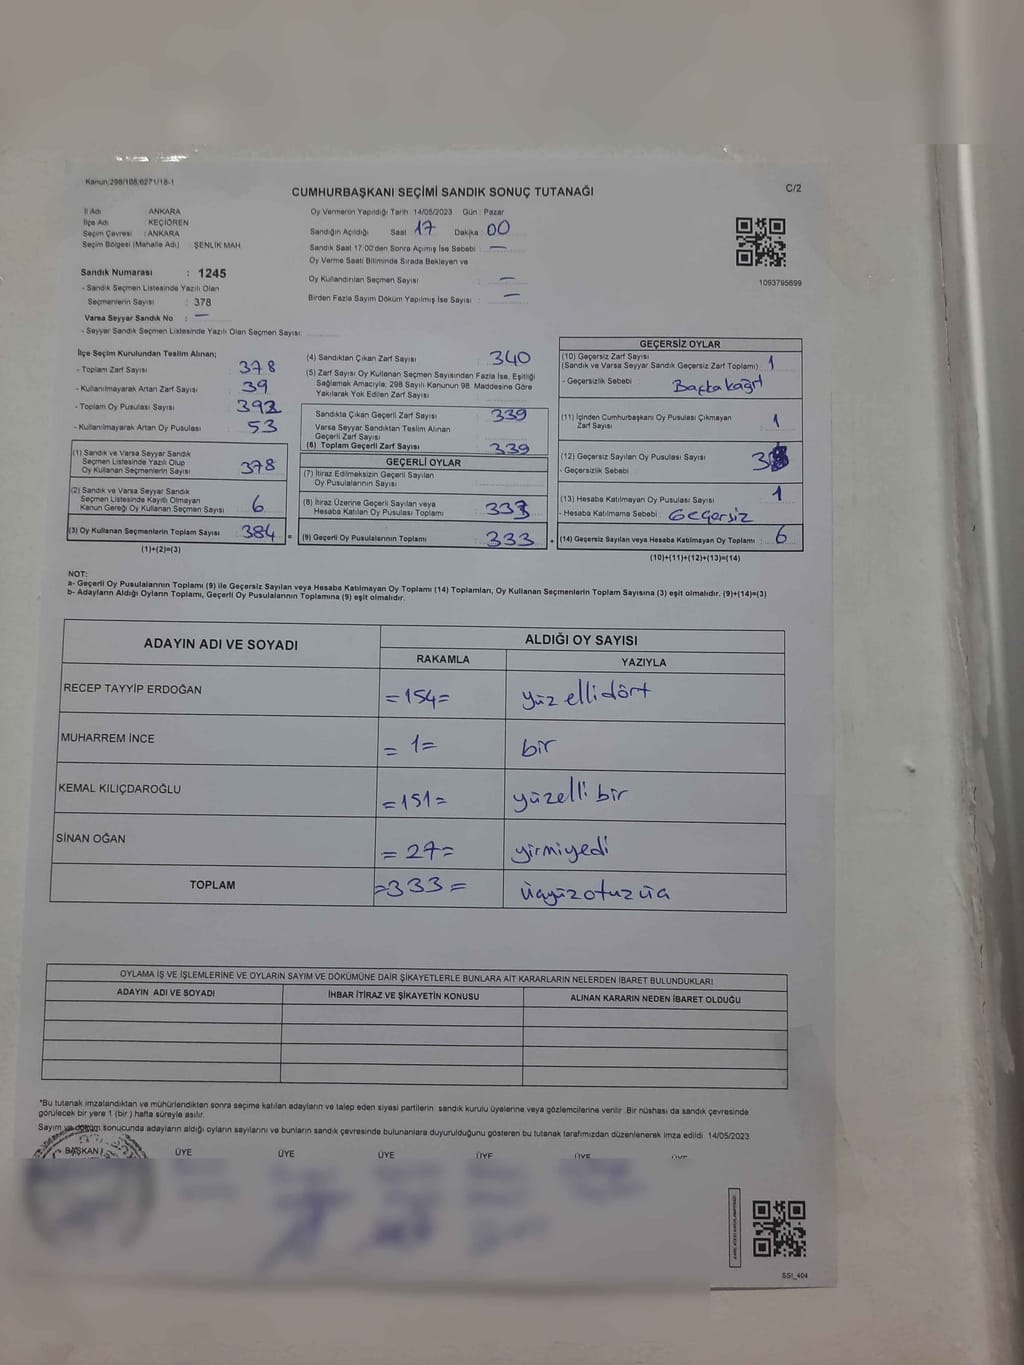 Kanun:298/108,6271/18-1
CUMHURBAŞKANI SEÇİMİ SANDIK SONUÇ TUTANAĞI
C/2
İl Adı : ANKARA
İlçe Adı : KEÇİÖREN
Seçim Çevresi : ANKARA
Seçim Bölgesi (Mahalle Adı) : ŞENLİK MAH
Sandık Numarası : 1245
- Sandık Seçmen Listesinde Yazılı Olan
Seçmenlerin Sayısı : 378
Varsa Seyyar Sandık No : —
- Seyyar Sandık Seçmen Listesinde Yazılı Olan Seçmen Sayısı:
Oy Vermenin Yapıldığı Tarih 14/05/2023 Gün : Pazar
Sandığın Açıldığı Saat 17 Dakika 00
Sandık Saat 17.00'den Sonra Açılmış İse Sebebi : —
Oy Verme Saati Bitiminde Sırada Bekleyen ve
Oy Kullandırılan Seçmen Sayısı : —
Birden Fazla Sayım Döküm Yapılmış İse Sayısı : —
1093795699
İlçe Seçim Kurulundan Teslim Alınan;
- Toplam Zarf Sayısı : 378
- Kullanılmayarak Artan Zarf Sayısı : 39
- Toplam Oy Pusulası Sayısı : 392
- Kullanılmayarak Artan Oy Pusulası : 53
(1) Sandık ve Varsa Seyyar Sandık
Seçmen Listesinde Yazılı Olup
Oy Kullanan Seçmenlerin Sayısı : 378
(2) Sandık ve Varsa Seyyar Sandık
Seçmen Listesinde Kayıtlı Olmayan
Kanun Gereği Oy Kullanan Seçmen Sayısı : 6
(3) Oy Kullanan Seçmenlerin Toplam Sayısı : 384 =
(1)+(2)=(3)
(4) Sandıktan Çıkan Zarf Sayısı : 340
(5) Zarf Sayısı Oy Kullanan Seçmen Sayısından Fazla İse, Eşitliği
Sağlamak Amacıyla, 298 Sayılı Kanunun 98. Maddesine Göre
Yakılarak Yok Edilen Zarf Sayısı :
Sandıkta Çıkan Geçerli Zarf Sayısı : 339
Varsa Seyyar Sandıktan Teslim Alınan
Geçerli Zarf Sayısı :
(6) Toplam Geçerli Zarf Sayısı : 339
GEÇERLİ OYLAR
(7) İtiraz Edilmeksizin Geçerli Sayılan
Oy Pusulalarının Sayısı :
(8) İtiraz Üzerine Geçerli Sayılan veya
Hesaba Katılan Oy Pusulası Toplamı : 333
(9) Geçerli Oy Pusulalarının Toplamı : 333 +
GEÇERSİZ OYLAR
(10) Geçersiz Zarf Sayısı
(Sandık ve Varsa Seyyar Sandık Geçersiz Zarf Toplamı) : 1
- Geçersizlik Sebebi : Başka kağıt
(11) İçinden Cumhurbaşkanı Oy Pusulası Çıkmayan
Zarf Sayısı : 1
(12) Geçersiz Sayılan Oy Pusulası Sayısı : 3
- Geçersizlik Sebebi :
(13) Hesaba Katılmayan Oy Pusulası Sayısı : 1
- Hesaba Katılmama Sebebi : Geçersiz
(14) Geçersiz Sayılan veya Hesaba Katılmayan Oy Toplamı : 6
(10)+(11)+(12)+(13)=(14)
NOT:
a- Geçerli Oy Pusulalarının Toplamı (9) ile Geçersiz Sayılan veya Hesaba Katılmayan Oy Toplamı (14) Toplamları, Oy Kullanan Seçmenlerin Toplam Sayısına (3) eşit olmalıdır. (9)+(14)=(3)
b- Adayların Aldığı Oyların Toplamı, Geçerli Oy Pusulalarının Toplamına (9) eşit olmalıdır.
ADAYIN ADI VE SOYADI
ALDIĞI OY SAYISI
RAKAMLA YAZIYLA
RECEP TAYYİP ERDOĞAN =154= yüz ellidört
MUHARREM İNCE =1= bir
KEMAL KILIÇDAROĞLU =151= yüzelli bir
SİNAN OĞAN =27= yirmiyedi
TOPLAM =333= üçyüzotuzüç
OYLAMA İŞ VE İŞLEMLERİNE VE OYLARIN SAYIM VE DÖKÜMÜNE DAİR ŞİKAYETLERLE BUNLARA AİT KARARLARIN NELERDEN İBARET BULUNDUKLARI
ADAYIN ADI VE SOYADI İHBAR İTİRAZ VE ŞİKAYETİN KONUSU ALINAN KARARIN NEDEN İBARET OLDUĞU
*Bu tutanak imzalandıktan ve mühürlendikten sonra seçime katılan adayların ve talep eden siyasi partilerin sandık kurulu üyelerine veya gözlemcilerine verilir. Bir nüshası da sandık çevresinde
görülecek bir yere 1 (bir) hafta süreyle asılır.
Sayım ve döküm sonucunda adayların aldığı oyların sayılarını ve bunların sandık çevresinde bulunanlara duyurulduğunu gösteren bu tutanak tarafımızdan düzenlenerek imza edildi. 14/05/2023
BAŞKAN ÜYE ÜYE ÜYE ÜYE ÜYE ÜYE
SSİ_404